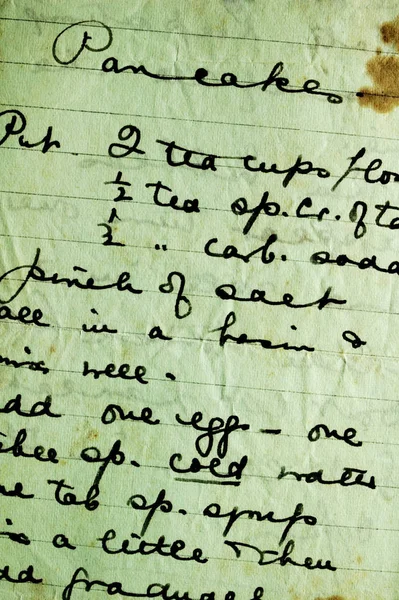 Pancakes.
Put 2 tea cups flou
½ tea sp. Cr. of ta
½ " carb. soda
pinch of salt
all in a basin &
mix well.
add one egg – one
sp. cold water
one tab sp. syrup
a little & then
add gradual